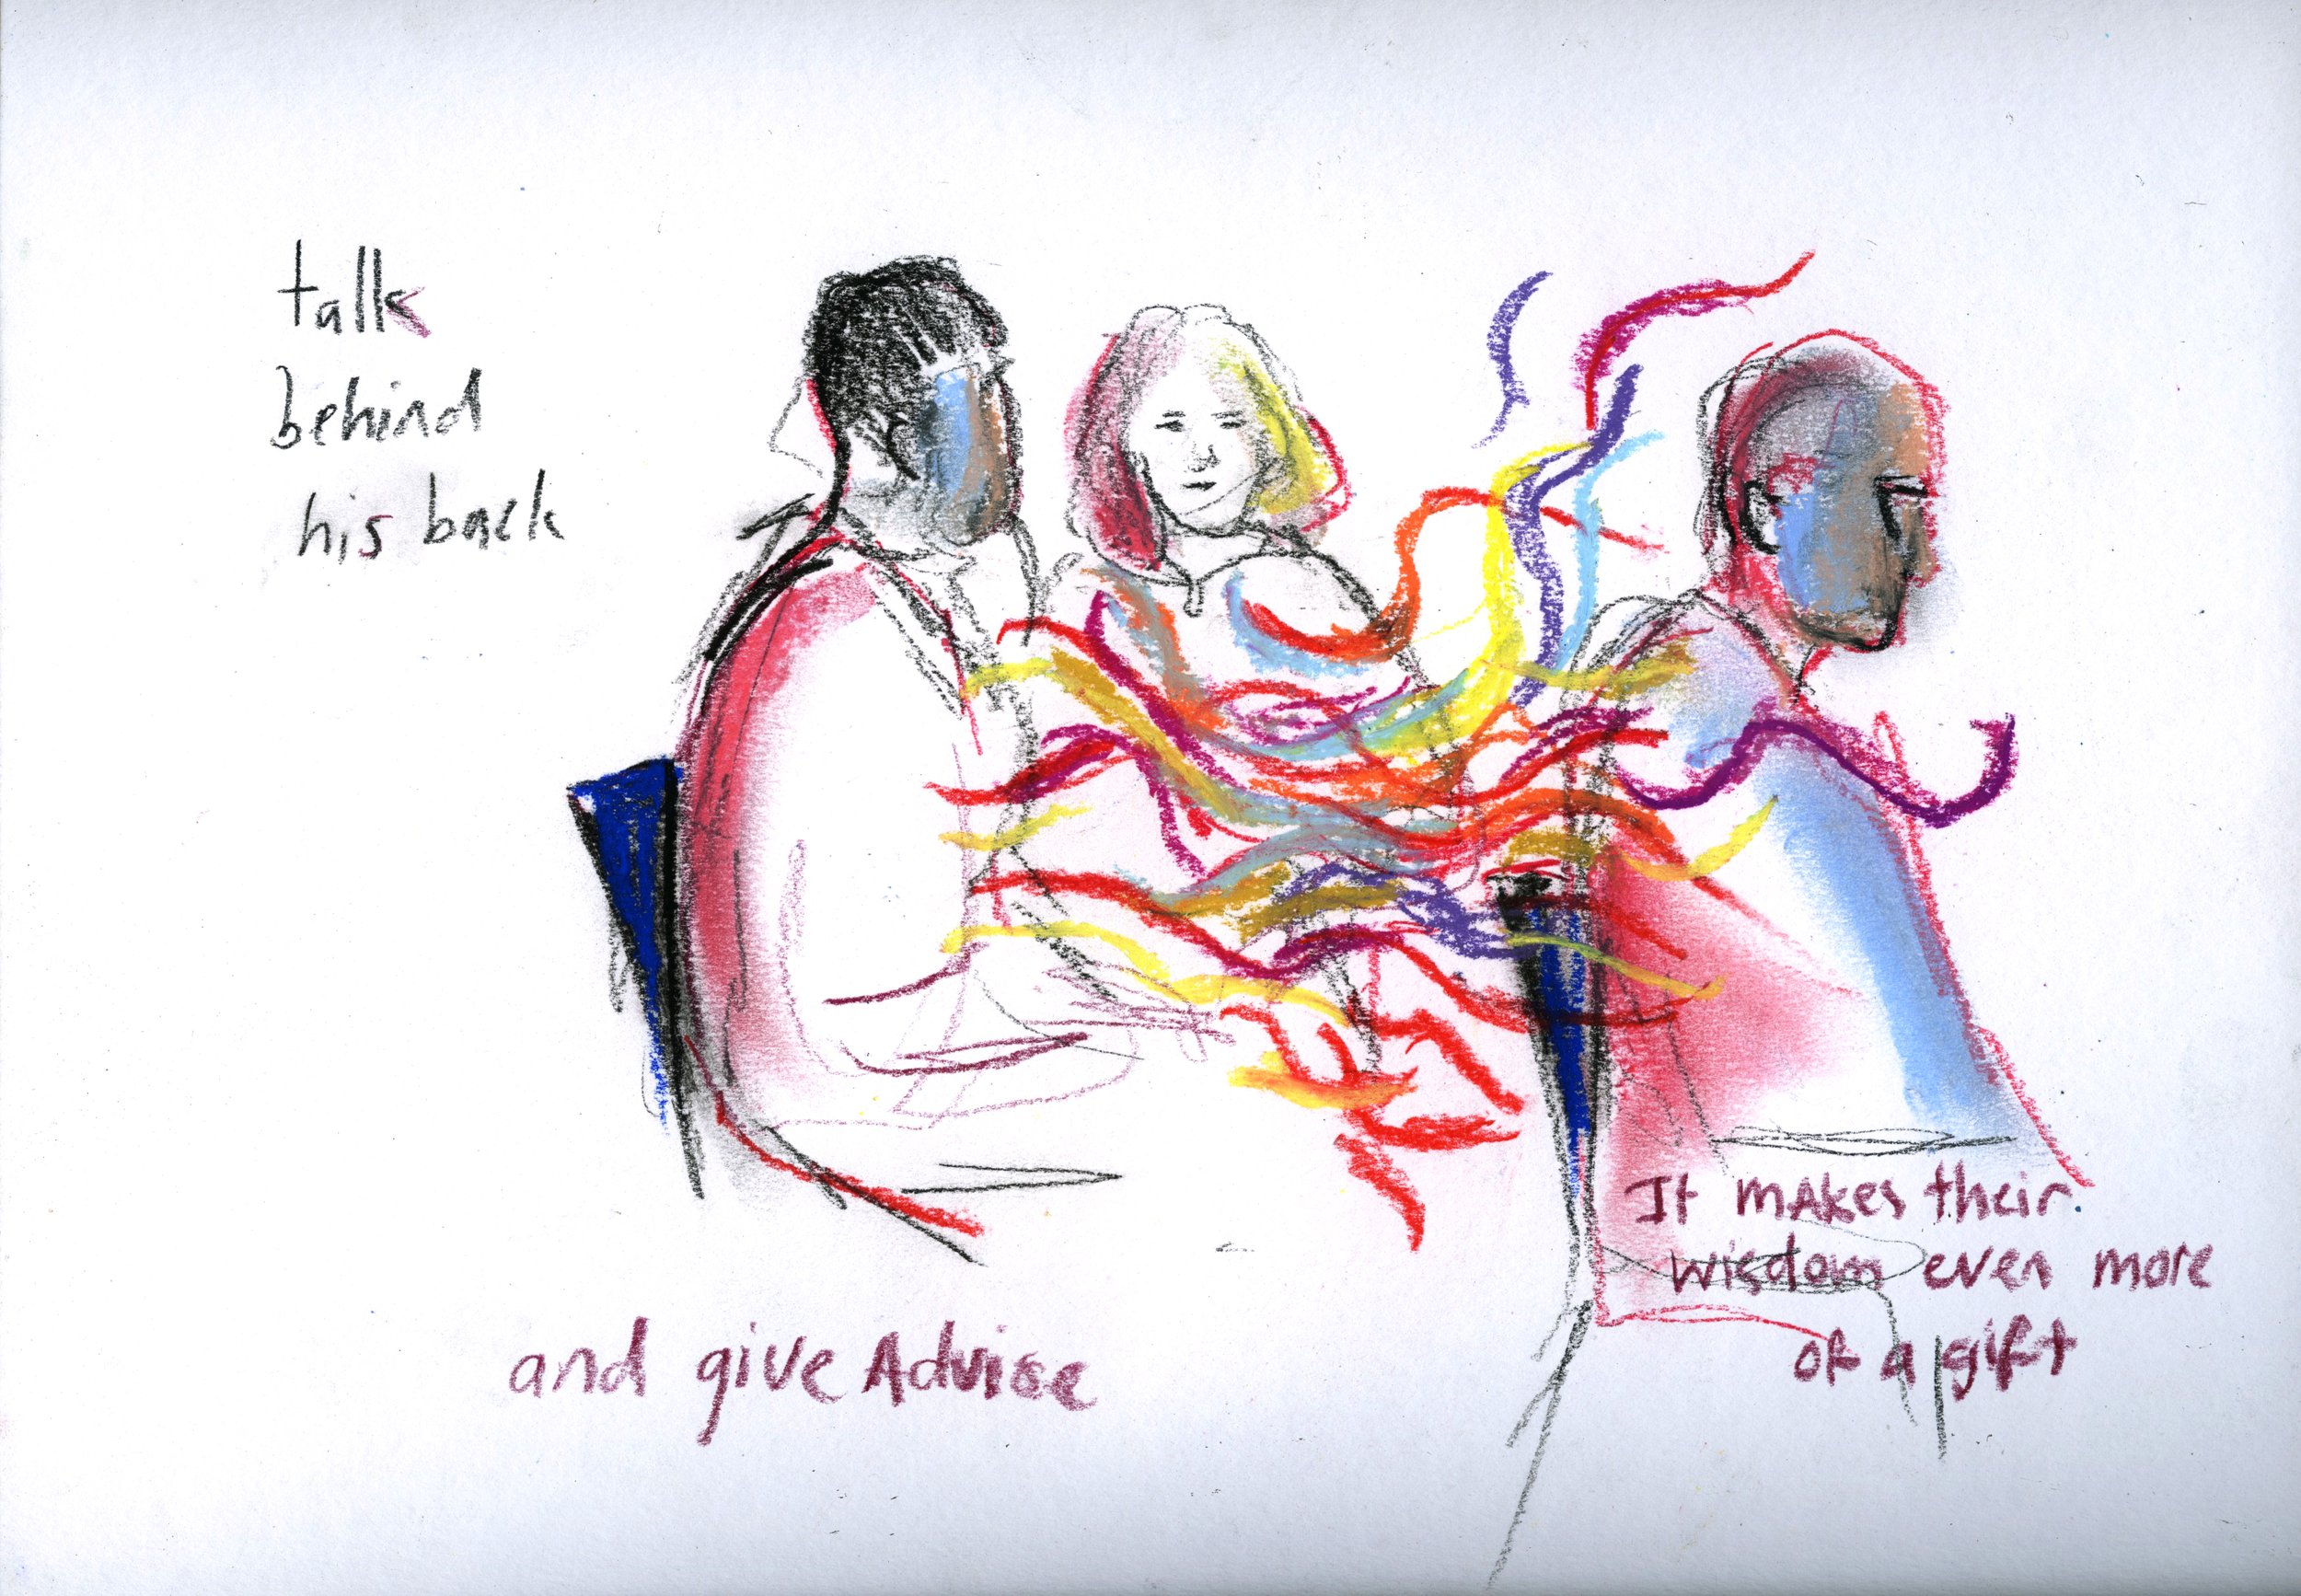 talk
behind
his back
and give Advise
It mAkes their
wisdom even more
of a gift